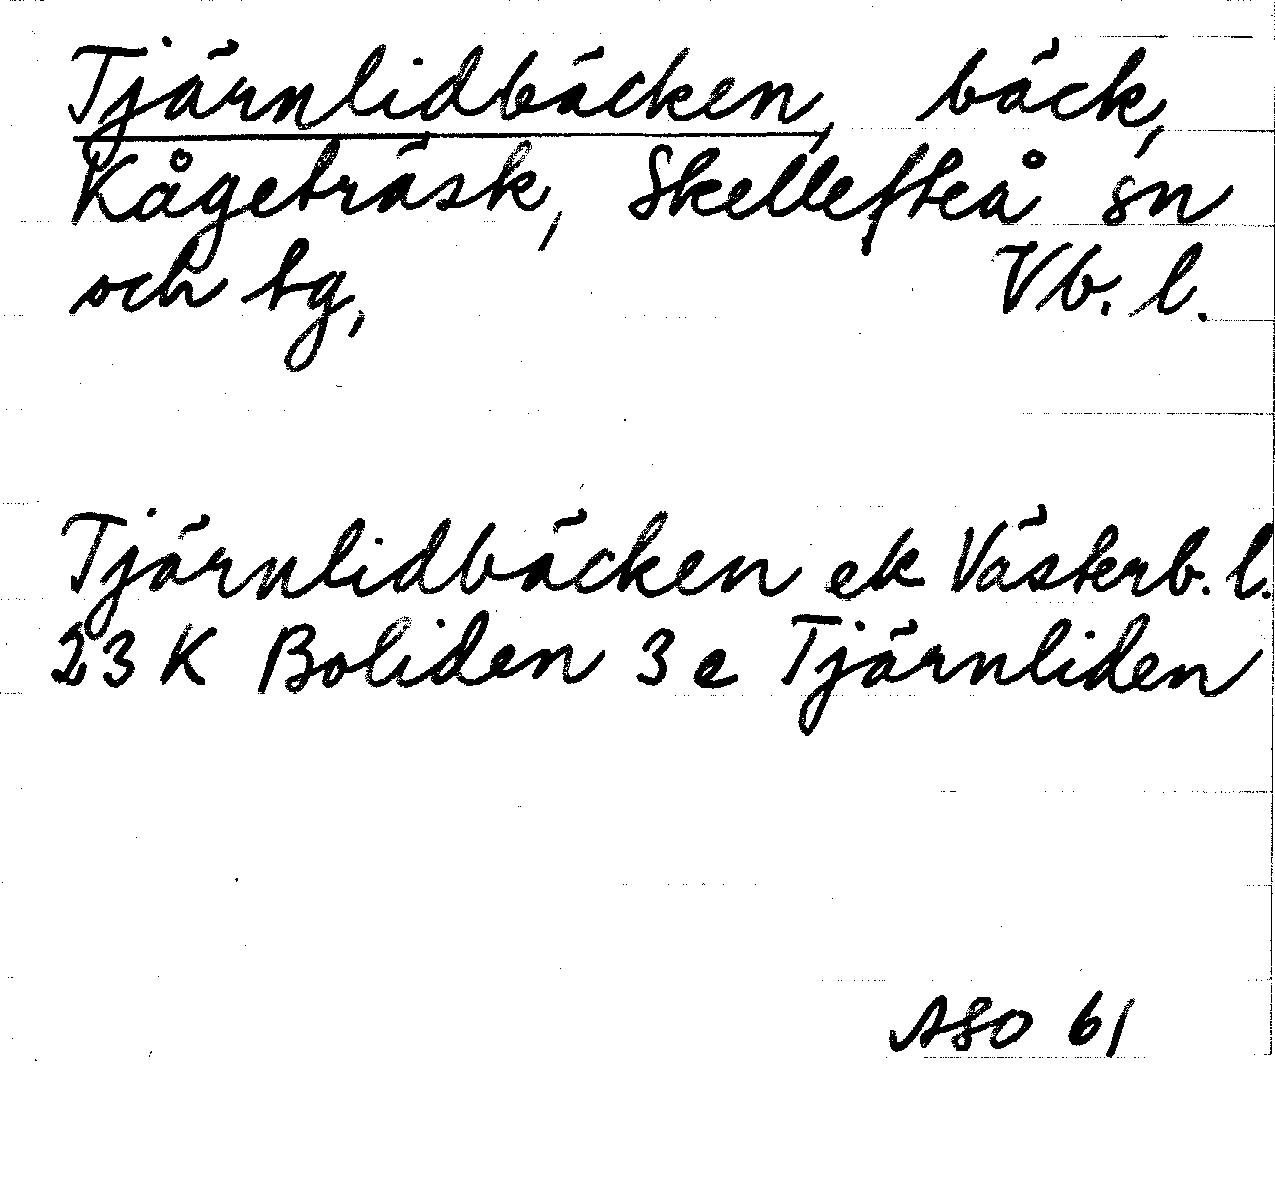 Tjärnlidbäcken, bäck,
Kågeträsk, Skellefteå sn
och tg, Vb. l.
Tjärnlidbäcken ek Västerb. l.
23 K Boliden 3 e Tjärnliden
ASO 61